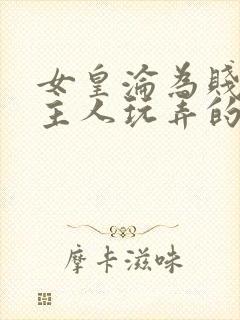 女皇淪為賤
主人玩弄的
摩卡滋味